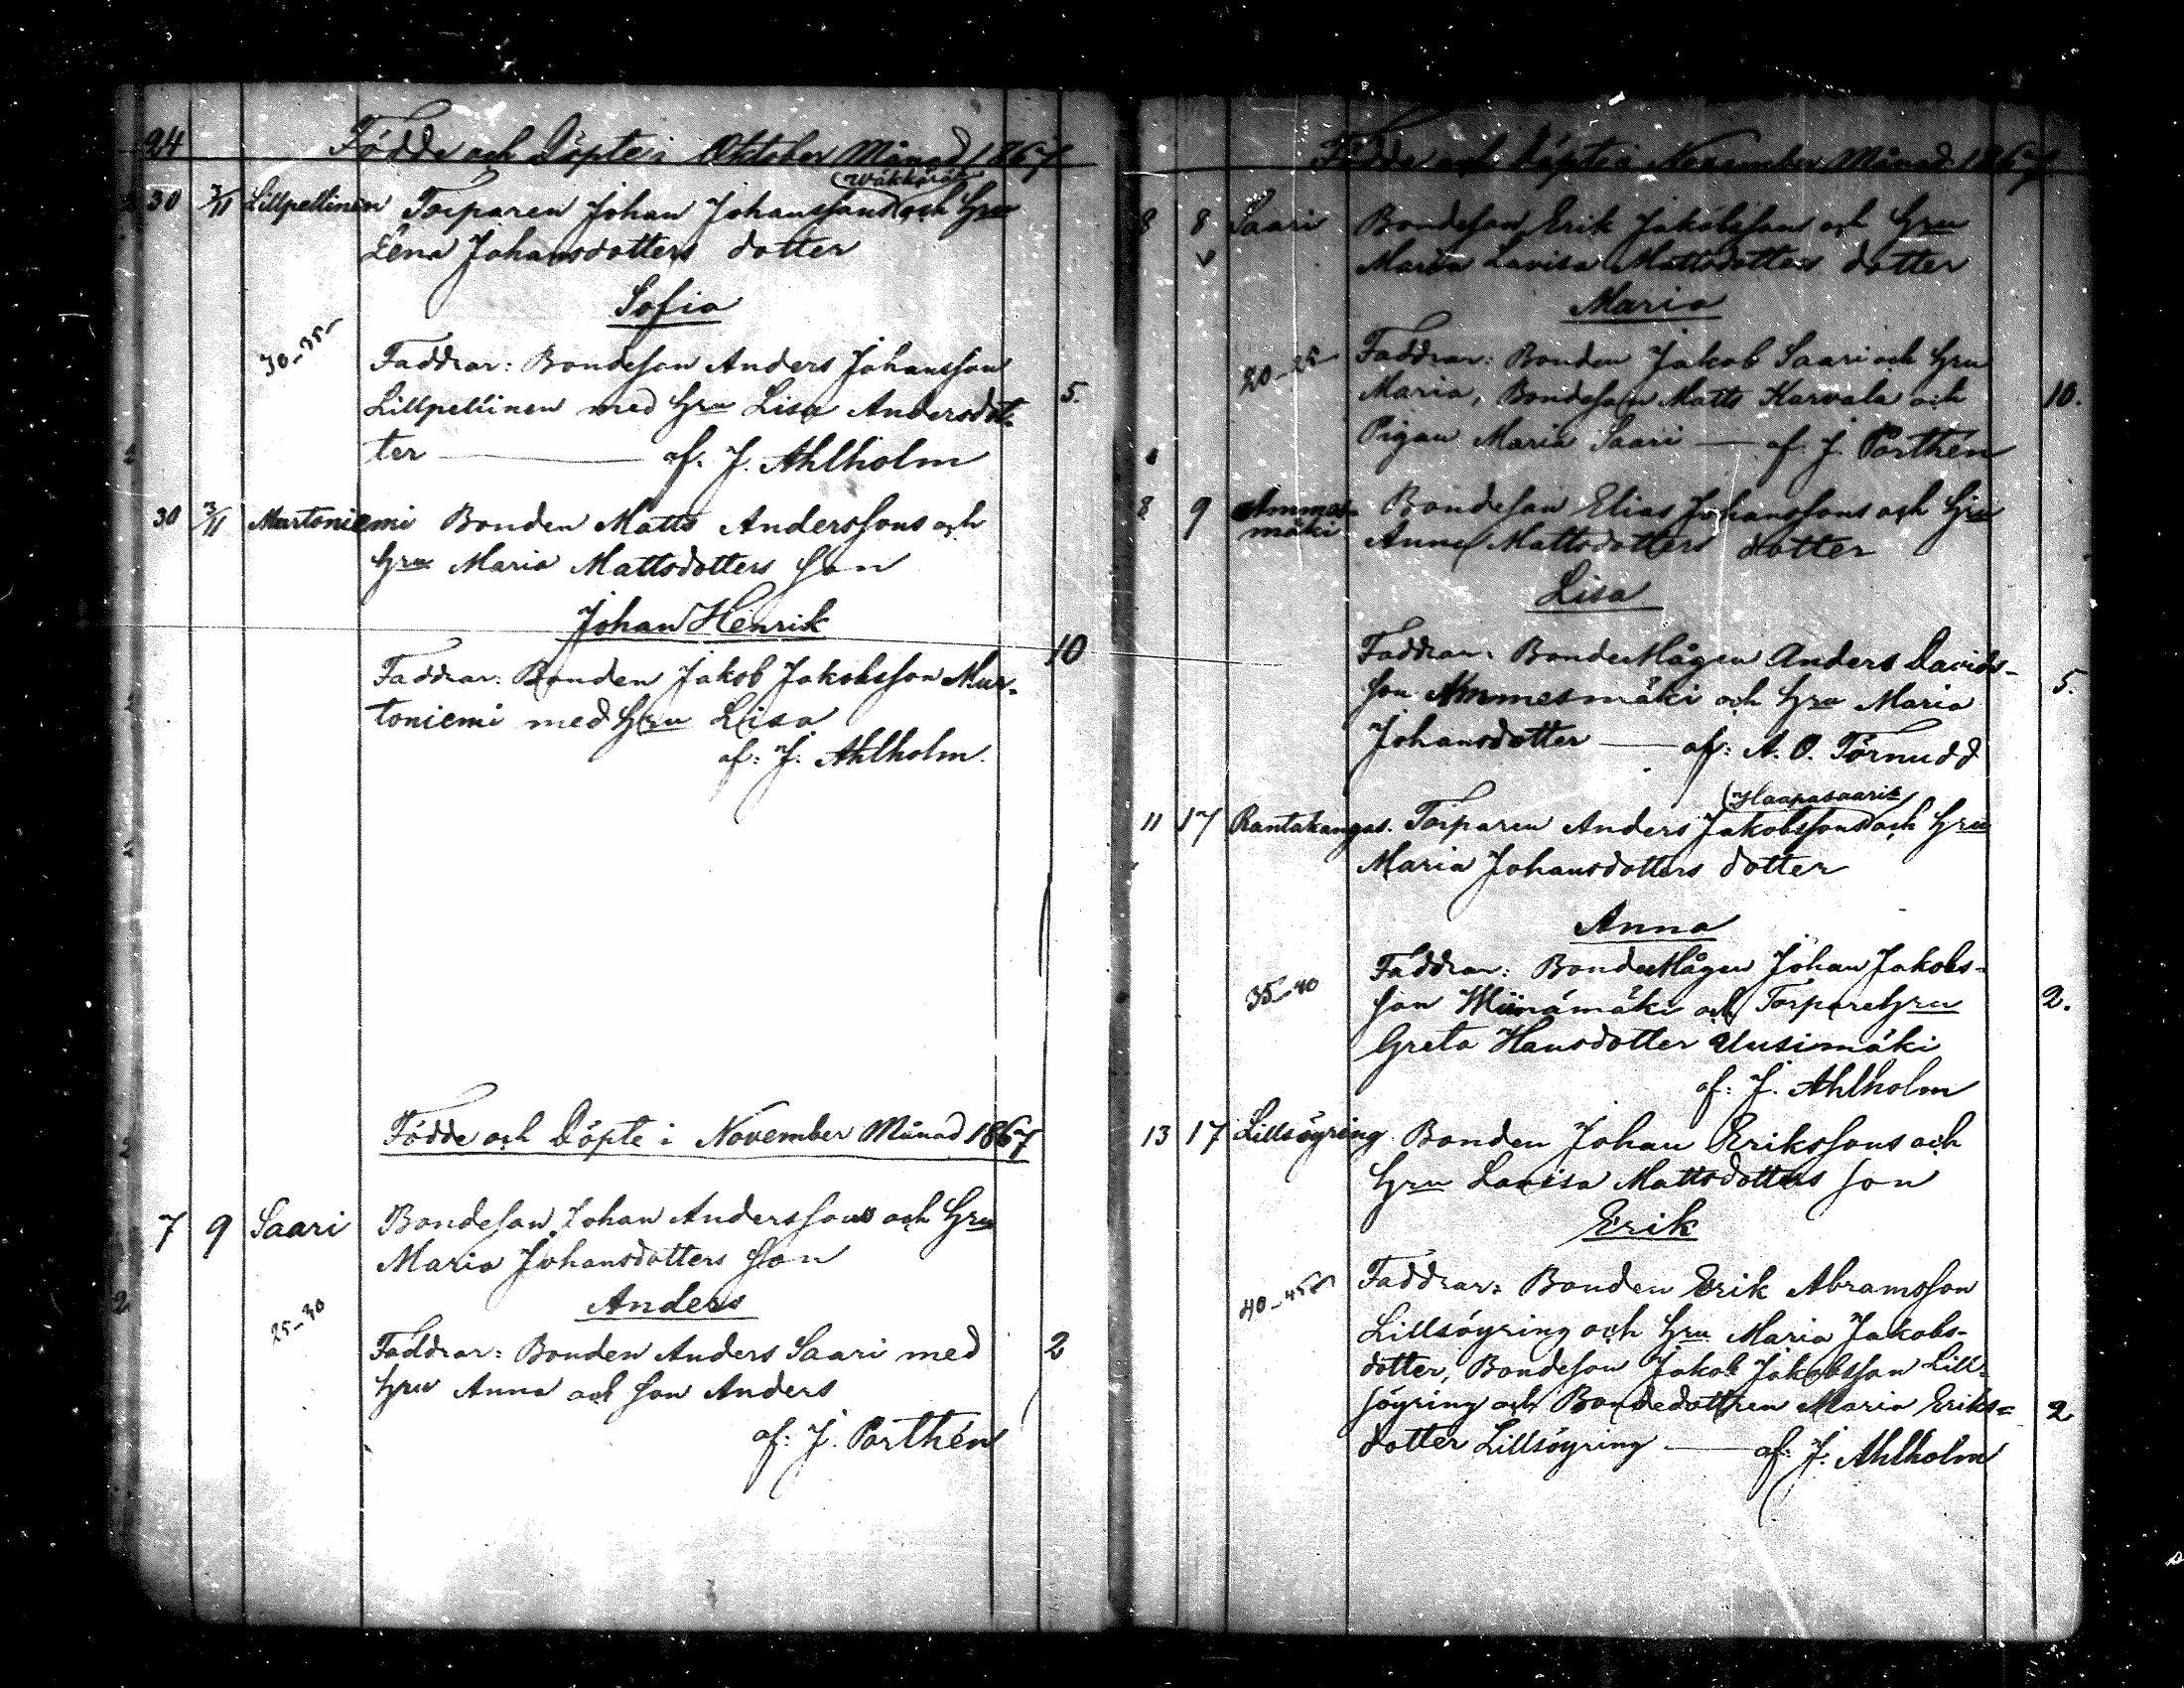 94 Födde och Döpte i Oktober Månad 1867
(Wäkkärä)
30 3/11 Lillpellinen Torparen Johan Johanssons och Hru
Lena Johansdotters dotter
Sofia
30-35-
Faddrar: Bondeson Anders Johansson
Lillpellinen med Hru Lisa Andersdot- 5.
ter — af. J. Ahlholm
30 3/11 Murtoniemi Bonden Matts Anderssons och
Hru Maria Mattsdotters son
Johan Henrik
10
Faddrar: Bonden Jakob Jakobsson Mur-
toniemi med Hru Lisa
af: J. Ahlholm.
Födde och Döpte i November Månad 1867
7 9 Saari Bondeson Johan Anderssons och Hru
Maria Johansdotters son
Anders
25-30
Faddrar: Bonden Anders Saari med 2
Hru Anna och son Anders
af: J. Porthén
Födde och Döpte i November Månad 1867
8 8 Saari Bondeson Erik Jakobsson och Hru
v Maria Lovisa Mattsdotters dotter
Maria
20-25 Faddrar: Bonden Jakob Saari och Hru
Maria, Bondeson Matts Karvala och 10.
Pigan Maria Saari — af J. Porthén
8 9 Ammes- Bondeson Elias Johanssons och Hru
mäki Anna Mattsdotters dotter
Lisa
Faddrar: Bondemågen Anders Davids-
son Ammesmäki och Hru Maria 5.
Johansdotter — af: A. O. Törnudd
(Haapasaari)
11 17 Rantakangas. Torparen Anders Jakobssons och Hru
Maria Johansdotters dotter
Anna
Faddrar: Bondemågen Johan Jakobs-
35-40 son Miinämäki och Torparehru 2.
Greta Hansdotter Uusimäki
af: J. Ahlholm
13 17 Lillsöyring Bonden Johan Erikssons och
Hru Lovisa Mattsdotters son
Erik
40-45 Faddrar: Bonden Erik Abramsson
Lillsöyring och Hru Maria Jakobs-
dotter, Bondeson Jakob Jakobsson Lill-
söyring och Bondedottren Maria Eriks- 2
dotter Lillsöyring — af: J. Ahlholm